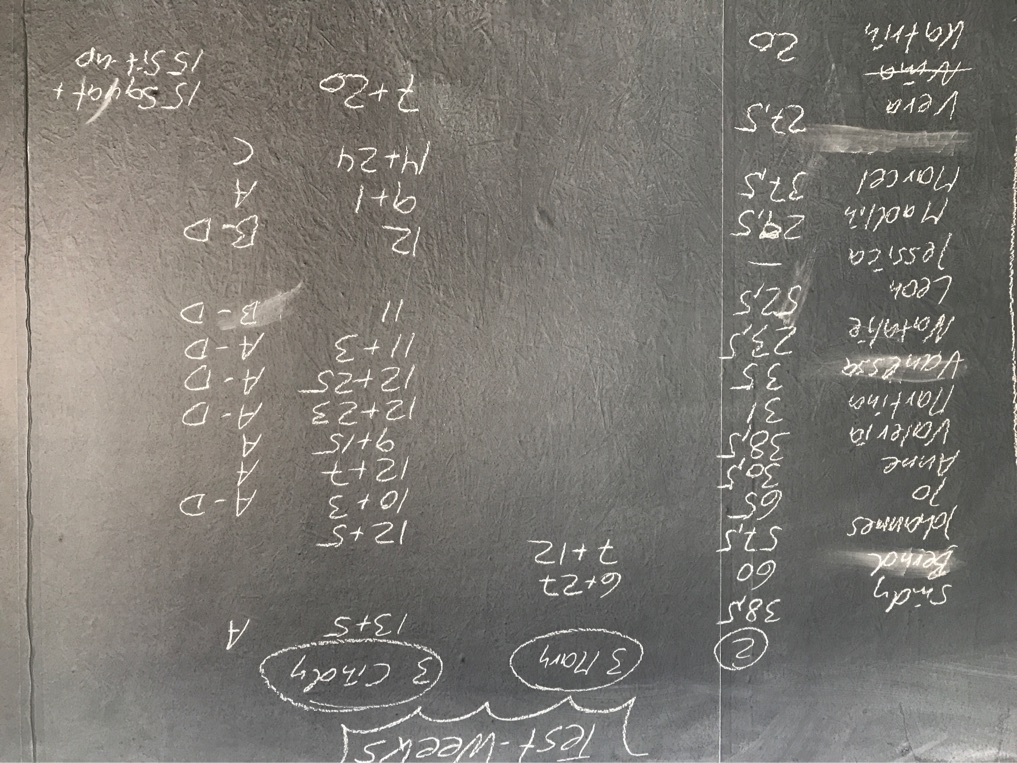 Test-Weeks
2 3 Mary 3 Cindy
Sindy 38,5 13+5 A
Bernd 60 6+27
Johannes 57,5 7+12 12+5
Jo 65 10+3 A-D
Anne 30,5 12+7 A
Valeria 38,5 9+15 A
Martina 31 12+23 A-D
Vanessa 35 12+25 A-D
Natalie 23,5 11+3 A-D
Leon 52,5 11 B-D
Jessica —
Madlin 29,5 12 B-D
Marcel 37,5 9+1 A
14+24 C
Vera 27,5
Nina 7+20 15 Squat +
Katrin 20 15 Sit-up